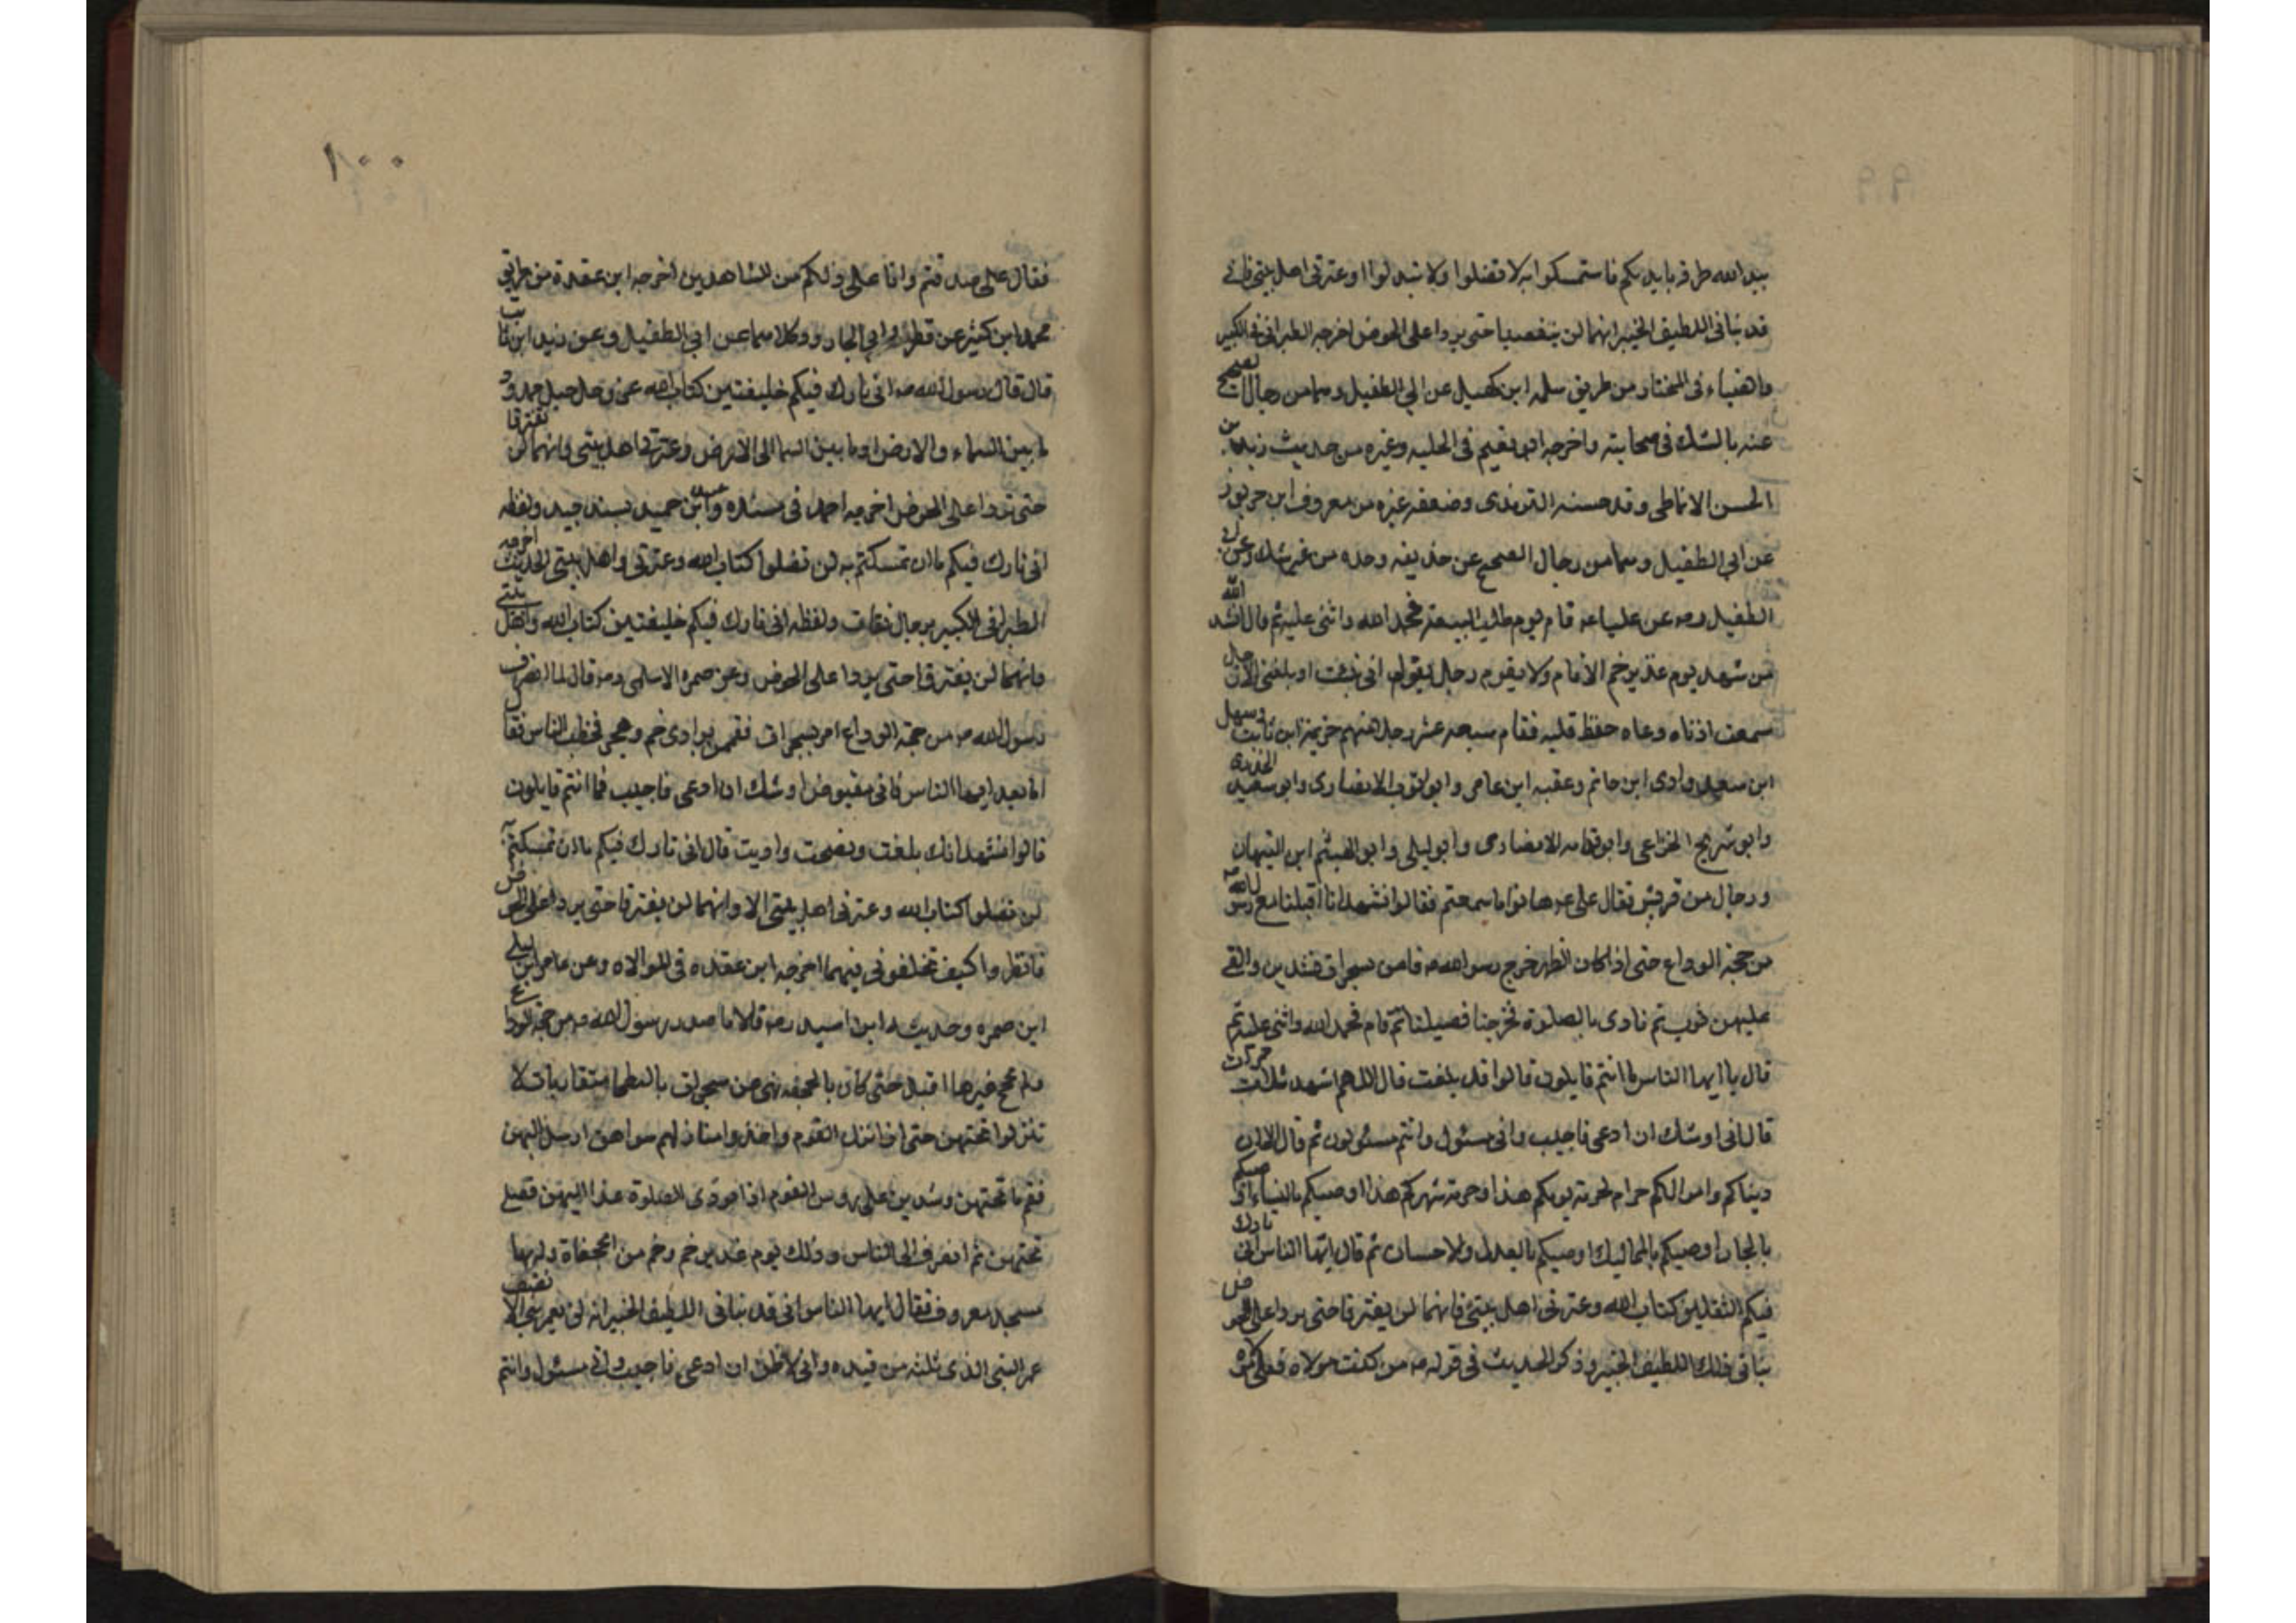 بيد الله طرفه بايديكم فاستمسكوا به لا تضلوا ولا تبدلوا وعترتى اهل بيتى فانه
قد نبانى اللطيف الخبير انهما لن ينقضيا حتى يردا على الحوض اخرجه الطبرانى فى الكبير
والضياء فى المختار من طريق سلمه ابن كهيل عن ابي الطفيل وهما من رجال الصحيح
عنه بالشك فى صحابيته واخرجه ابو نعيم فى الحليه وغيره من حديث زيد بن
الحسن الانماطى وقد حسنه الترمذى وضعفه غيره من معروف ابن خربوذ
عن ابي الطفيل وهما من رجال الصحيح عن حذيفه وحده من غير شك وعن
الطفيل رضه عن عليا عه قام يوم طلب البيعة فحمد الله واثنى عليه ثم قال انشد الله
من شهد يوم غدير خم الا قام ولا يقوم رجل يقول انى نبئت او بلغنى الا رجل
سمعت اذناه وعاه حفظ قلبه فقام سبعه عشر رجلا منهم خزيمة ابن ثابت وسهل
ابن سعد وادى ابن حاتم وعقبه ابن عامر وابو ايوب الانصارى وابو سعيد الخدرى
وابو شريح الخزاعى وابو قدامه الانصارى وابو ليلى وابو الهيثم ابن التيهان
ورجال من قريش فقال على عه هاتوا ما سمعتم فقالوا نشهد انا اقبلنا مع رسول الله
من حجة الوداع حتى اذا كان الظهر خرج رسول الله صه فامر بسجرات فشدبن والقى
عليهن ثوب ثم نادى بالصلوة فخرجنا فصلينا ثم قام فحمد الله واثنى عليه ثم
قال يا ايها الناس ما انتم قايلون قالوا قد بلغت قال اللهم اشهد ثلاث مرات
قال انى اوشك ان ادعى فاجيب وانى مسئول وانتم مسئولون ثم قال الا ان
دماكم واموالكم حرام لحرمة يومكم هذا وحرمة شهركم هذا اوصيكم بالنساء اوصيكم
بالجار اوصيكم بالمماليك اوصيكم بالعدل والاحسان ثم قال ايها الناس انى تارك
فيكم الثقلين كتاب الله وعترتى اهل بيتى فانهما لن يفترقا حتى يردا على الحوض
نبانى ذلك اللطيف الخبير وذكر الحديث فى قوله صه من كنت مولاه فعلى مولاه
١٠٠
فقال على صدقتم وانا على ذلكم من الشاهدين اخرجه ابن عقدة من طريق
محمد ابن كثير عن فطر وابي الجارود وكلاهما عن ابي الطفيل وعن زيد ابن ثابت
قال قال رسول الله صه انى تارك فيكم خليفتين كتاب الله عز وجل حبل ممدود
ما بين السماء والارض او ما بين السما الى الارض وعترتى اهل بيتى وانهما لن يفترقا
حتى يردا على الحوض اخرجه احمد فى مسنده وعبد ابن حميد بسند جيد ولفظه
انى تارك فيكم ما ان تمسكتم به لن تضلوا كتاب الله وعترتى واهل بيتى الحديث اخرجه
الطبرانى فى الكبير برجال ثقات ولفظه انى تارك فيكم خليفتين كتاب الله واهل بيتى
وانهما لن يفترقا حتى يردا على الحوض وعن ضمره الاسلمى رضه قال لما انصرف
رسول الله صه من حجة الوداع امر بسجرات فقممن بوادى خم وهجر فخطب الناس فقال
اما بعد ايها الناس فانى مقبوض اوشك ان ادعى فاجيب فما انتم قايلون
قالوا نشهد انك بلغت ونصحت واديت قال انى تارك فيكم ما ان تمسكتم به
لن تضلوا كتاب الله وعترتى اهل بيتى الا وانهما لن يفترقا حتى يردا على الحوض
فانظروا كيف تخلفونى فيهما اخرجه ابن عقده فى الموالاه وعن عامر ابن ليلى
ابن ضمره وحديثه ابن اسيد رضه قالا ما صدر رسول الله صه من حجة الوداع
ولم يحج غيرها اقبل حتى كان بالجحفه نهى عن سجرات بالبطحا متقاربات لا
تنزلوا تحتهن حتى اذا نزل القوم واخذوا منازلهم سواهن ارسل اليهن
فقم ما تحتهن وشدبن على روس القوم اذا نودى الصلوة غدا اليهن فصلى
تحتهن ثم انصرف الى الناس وذلك يوم غدير خم وخم من الجحفاة وله بها
مسجد معروف فقال ايها الناس انى قد نبانى اللطيف الخبير انه لن يعمر نبي الا نصف
عمر النبى الذى ثلثه من قبله وانى لاظن ان ادعى فاجيب وانى مسئول وانتم